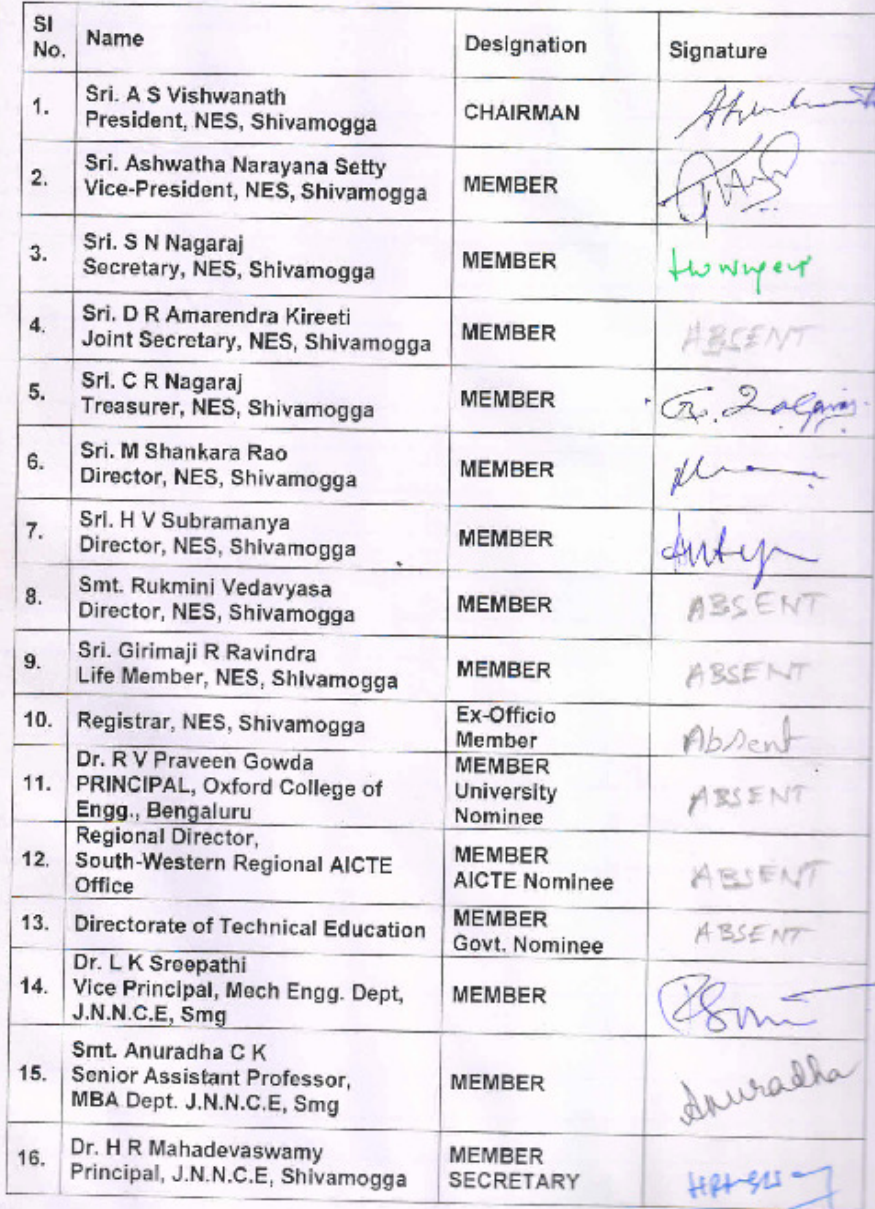 Sl No. Name Designation Signature
1. Sri. A S Vishwanath
President, NES, Shivamogga CHAIRMAN
2. Sri. Ashwatha Narayana Setty
Vice-President, NES, Shivamogga MEMBER
3. Sri. S N Nagaraj
Secretary, NES, Shivamogga MEMBER
4. Sri. D R Amarendra Kireeti
Joint Secretary, NES, Shivamogga MEMBER ABSENT
5. Sri. C R Nagaraj
Treasurer, NES, Shivamogga MEMBER
6. Sri. M Shankara Rao
Director, NES, Shivamogga MEMBER
7. Sri. H V Subramanya
Director, NES, Shivamogga MEMBER
8. Smt. Rukmini Vedavyasa
Director, NES, Shivamogga MEMBER ABSENT
9. Sri. Girimaji R Ravindra
Life Member, NES, Shivamogga MEMBER ABSENT
10. Registrar, NES, Shivamogga Ex-Officio
Member Absent
11. Dr. R V Praveen Gowda MEMBER
PRINCIPAL, Oxford College of University
Engg., Bengaluru Nominee ABSENT
12. Regional Director,
South-Western Regional AICTE MEMBER
Office AICTE Nominee ABSENT
13. Directorate of Technical Education MEMBER
Govt. Nominee ABSENT
14. Dr. L K Sreepathi
Vice Principal, Mech Engg. Dept, MEMBER
J.N.N.C.E, Smg
15. Smt. Anuradha C K
Senior Assistant Professor, MEMBER Anuradha
MBA Dept. J.N.N.C.E, Smg
16. Dr. H R Mahadevaswamy MEMBER
Principal, J.N.N.C.E, Shivamogga SECRETARY